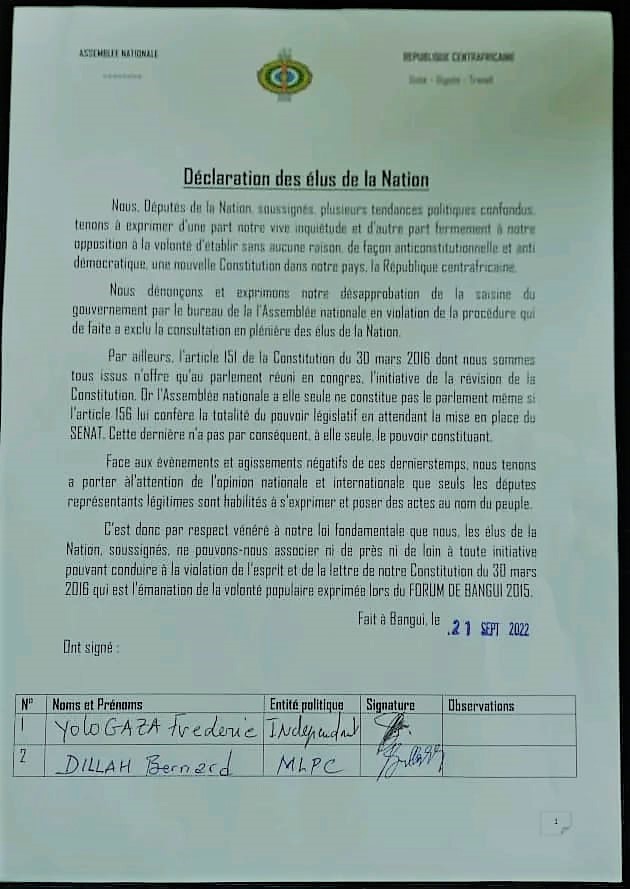 ASSEMBLEE NATIONALE
REPUBLIQUE CENTRAFRICAINE
Unité - Dignité - Travail
Déclaration des élus de la Nation
Nous, Députés de la Nation, soussignés, plusieurs tendances politiques confondus,
tenons à exprimer d'une part notre vive inquiétude et d'autre part fermement à notre
opposition à la volonté d'établir sans aucune raison, de façon anticonstitutionnelle et anti
démocratique, une nouvelle Constitution dans notre pays, la République centrafricaine.
Nous dénonçons et exprimons notre désapprobation de la saisine du
gouvernement par le bureau de la l'Assemblée nationale en violation de la procédure qui
de faite a exclu la consultation en plénière des élus de la Nation.
Par ailleurs, l'article 151 de la Constitution du 30 mars 2016 dont nous sommes
tous issus n'offre qu'au parlement réuni en congres, l'initiative de la révision de la
Constitution. Or l'Assemblée nationale a elle seule ne constitue pas le parlement même si
l'article 156 lui confère la totalité du pouvoir législatif en attendant la mise en place du
SENAT. Cette dernière n'a pas par conséquent, à elle seule, le pouvoir constituant.
Face aux évènements et agissements négatifs de ces dernierstemps, nous tenons
a porter àl'attention de l'opinion nationale et internationale que seuls les députes
représentants légitimes sont habilités à s'exprimer et poser des actes au nom du peuple.
C'est donc par respect vénéré à notre loi fondamentale que nous, les élus de la
Nation, soussignés, ne pouvons-nous associer ni de près ni de loin à toute initiative
pouvant conduire à la violation de l'esprit et de la lettre de notre Constitution du 30 mars
2016 qui est l'émanation de la volonté populaire exprimée lors du FORUM DE BANGUI 2015.
Fait à Bangui, le 21 SEPT 2022
Ont signé :
N° Noms et Prénoms Entité politique Signature Observations
1 YOLO GAZA Frederic Independant
2 DILLAH Bernard MLPC
1